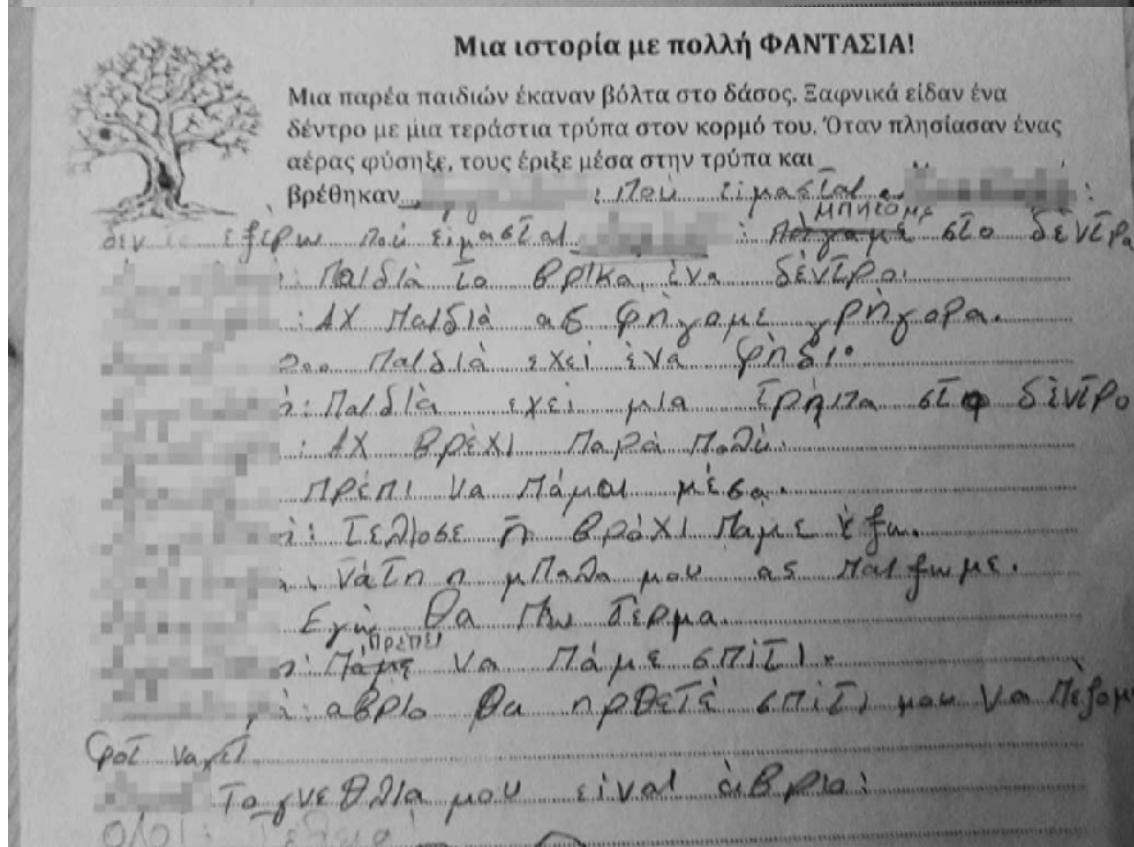 Μια ιστορία με πολλή ΦΑΝΤΑΣΙΑ!
Μια παρέα παιδιών έκαναν βόλτα στο δάσος. Ξαφνικά είδαν ένα
δέντρο με μια τεράστια τρύπα στον κορμό του. Όταν πλησίασαν ένας
αέρας φύσηξε, τους έριξε μέσα στην τρύπα και
βρέθηκαν : Πού ειμασται :
δεν εξέρω πού είμασται : μπήκομε στο δέντρα
: Παιδιά το βρικα ένα δέντρο.
: Αχ παιδιά ας φήγομε γρήγορα.
Παιδιά εχει ένα φήδι.
: Παιδιά εχει μια τρήπα στο δέντρο
: Αχ βρέχι παρά πολύ.
πρέπι να πάμαι μέσα.
: τέλιοσε ή βρόχι πάμε έξω.
νάτη η μπαλα μου ας παιξωμε.
Εγώ θα πω τέρμα.
: πρέπει να πάμε σπίτι.
: αβριο θα ηρθετέ σπίτι μου να πέξομ
Τα γνεθλια μου είναι άβριο:
ολοι: Τέλεια!